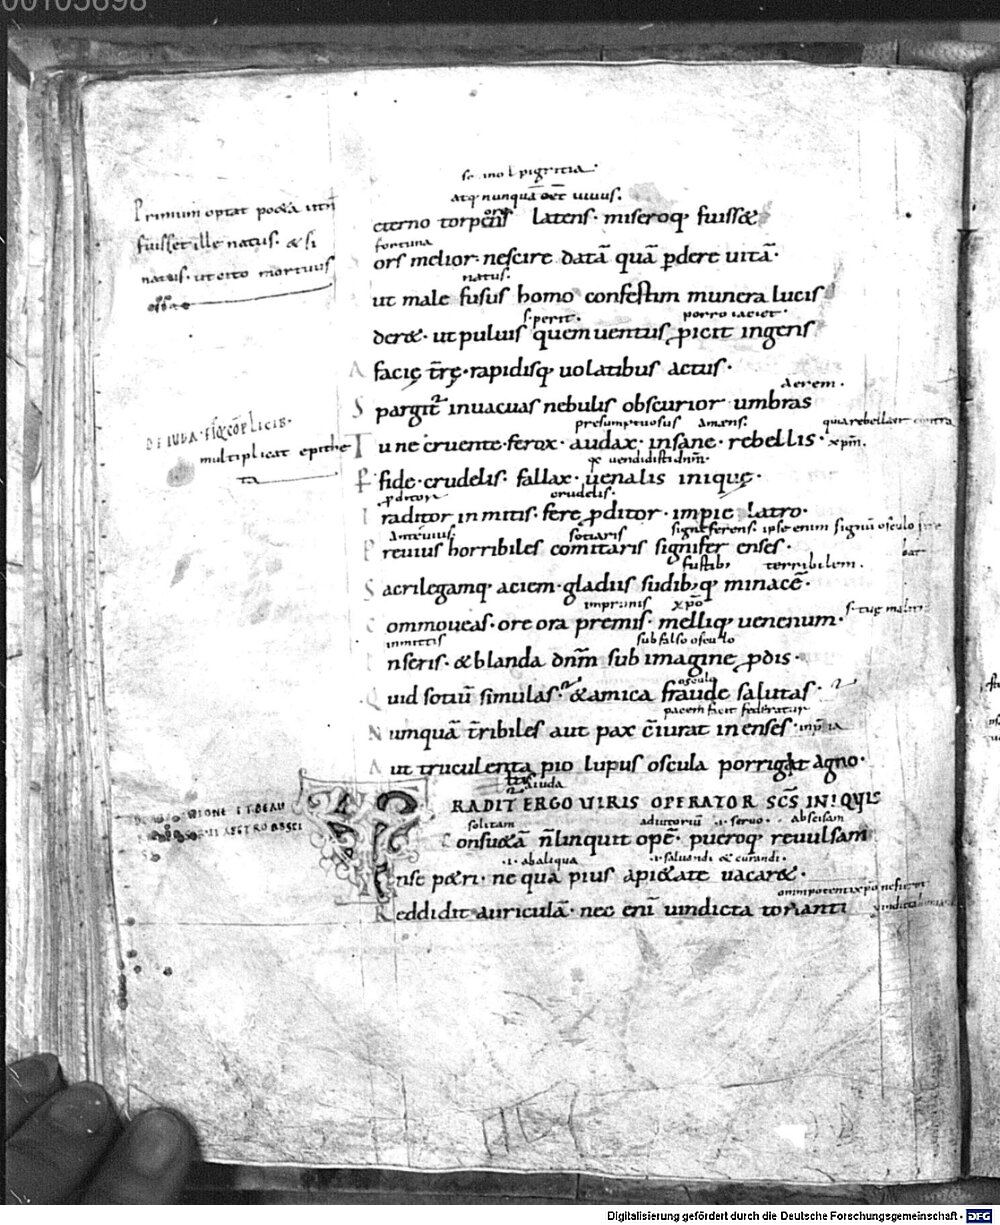 00105698
se ino l pigritia
atq; nunquā oēt uiuus.
Primum optat poeta utī
fuisset ille natus. & si
natus. ut cito mortuus
eterno torpens latens. miseroq; fuisse
fortuna
ors melior. nescire datā quā ꝑdere uitā.
natus.
ut male fusus homo confestim munera lucis
s. perit. porro iaciet.
deret. ut puluis quem uentus ꝓicit ingens
A facię tr̄ę. rapidisq; uolatibus actus.
aerem.
S pargit inuacuas nebulis obscurior umbras
presumptuosus amens. quia rebellaſt contra
DE IUDA
multiplicat epithe
ta
T u ne cruente. ferox. audax. insane. rebellis. xp̄m.
qe uendidisti dnm̄.
P fide. crudelis. fallax. uenalis inique.
ꝓditor crudelis.
T raditor inmitis. fere ꝓditor. impie latro.
Anteuius sotiaris signū ferens. ipse enim signū osculo
P reuius horribiles comitaris signifer enses.
bat
fustib; terribilem.
S acrilegamq; aciem. gladiis sudib;q; minacē.
imprimis xp̄o
C ommoueas. ore ora premis. melliq; uenenum.
inmittis sub falso osculo
I nseris. & blanda dnm̄ sub imagine ꝓdis.
Q uid sotiū simulas. & amica fraude salutas.
osculo
pacem facit federatur
N umquā tr̄ibiles aut pax c̄iurat in enses.
A ut truculenta pio lupus oscula porrigat agno.
a iuda
TRADIT ERGO UIRIS OPERATOR SC̄S INIQUIS
solitam adiutoriū .i. seruo. abscisam
C onsuetā n̄ linquit opē. pueroq; reuulsam
.i. ab aliqua .i. saluandi & curandi.
E nse petri. ne qua pius a pietate uacaret.
omnipotenti xp̄o
R eddidit auriculā. nec enī uindicta tonanti
Digitalisierung gefördert durch die Deutsche Forschungsgemeinschaft - DFG